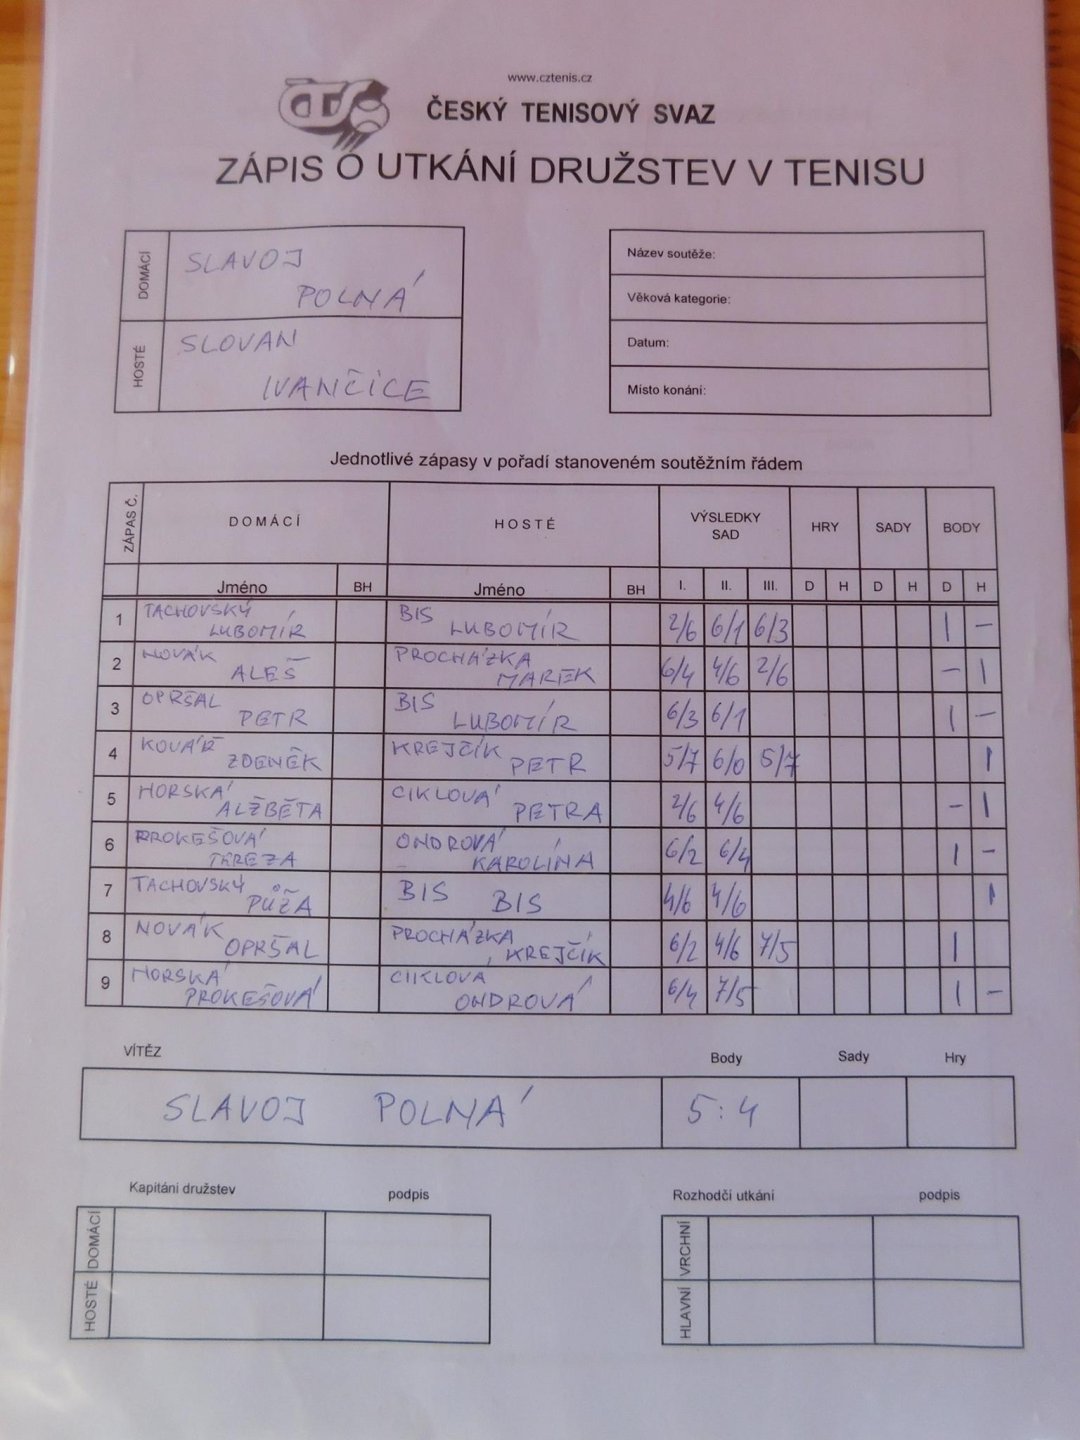 www.cztenis.cz
ČTS
ČESKÝ TENISOVÝ SVAZ
ZÁPIS O UTKÁNÍ DRUŽSTEV V TENISU
DOMÁCÍ SLAVOJ
POLNÁ
HOSTÉ SLOVAN
IVANČICE
Název soutěže:
Věková kategorie:
Datum:
Místo konání:
Jednotlivé zápasy v pořadí stanoveném soutěžním řádem
ZÁPAS Č. DOMÁCÍ HOSTÉ VÝSLEDKY SAD HRY SADY BODY
Jméno BH Jméno BH I. II. III. D H D H D H
1 TACHOVSKÝ LUBOMÍR BIS LUBOMÍR 2/6 6/1 6/3 1 –
2 NOVÁK ALEŠ PROCHÁZKA MAREK 6/4 4/6 2/6 – 1
3 OPRŠAL PETR BIS LUBOMÍR 6/3 6/1 1 –
4 KOVÁŘ ZDENĚK KREJČÍK PETR 5/7 6/0 5/7 1
5 HORSKÁ ALŽBĚTA CIKLOVÁ PETRA 2/6 4/6 – 1
6 PROKEŠOVÁ TEREZA ONDROVÁ KAROLÍNA 6/2 6/4 1 –
7 TACHOVSKÝ PŮŽA BIS BIS 4/6 4/6 1
8 NOVÁK OPRŠAL PROCHÁZKA, KREJČÍK 6/2 4/6 7/5 1
9 HORSKÁ PROKEŠOVÁ CIKLOVÁ ONDROVÁ 6/4 7/5 1 –
VÍTĚZ Body Sady Hry
SLAVOJ POLNÁ 5:4
Kapitáni družstev podpis Rozhodčí utkání podpis
DOMÁCÍ VRCHNÍ
HOSTÉ HLAVNÍ